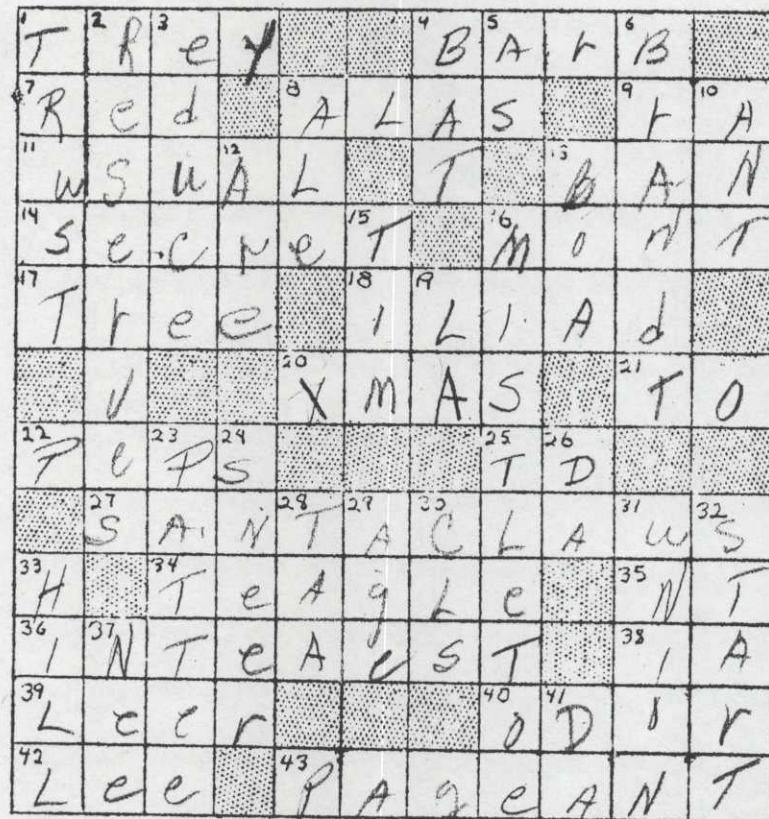 1 T 2 R 3 e y 4 B 5 A r 6 B
7 R e d 8 A L A S 9 r 10 A
11 u S u 12 A L T 13 B A N
14 S e c r e 15 T 16 M o n T
17 T r e e 18 I 19 L I A d
v 20 X M A S 21 T O
22 P e 23 P 24 S 25 T 26 D
27 S A N 28 T 29 A 30 C L A 31 u 32 S
33 H 34 T e A g L e 35 N T
36 I 37 N T e A e S T 38 I A
39 L e e r 40 O 41 D o r
42 L e e 43 P A g e A N T